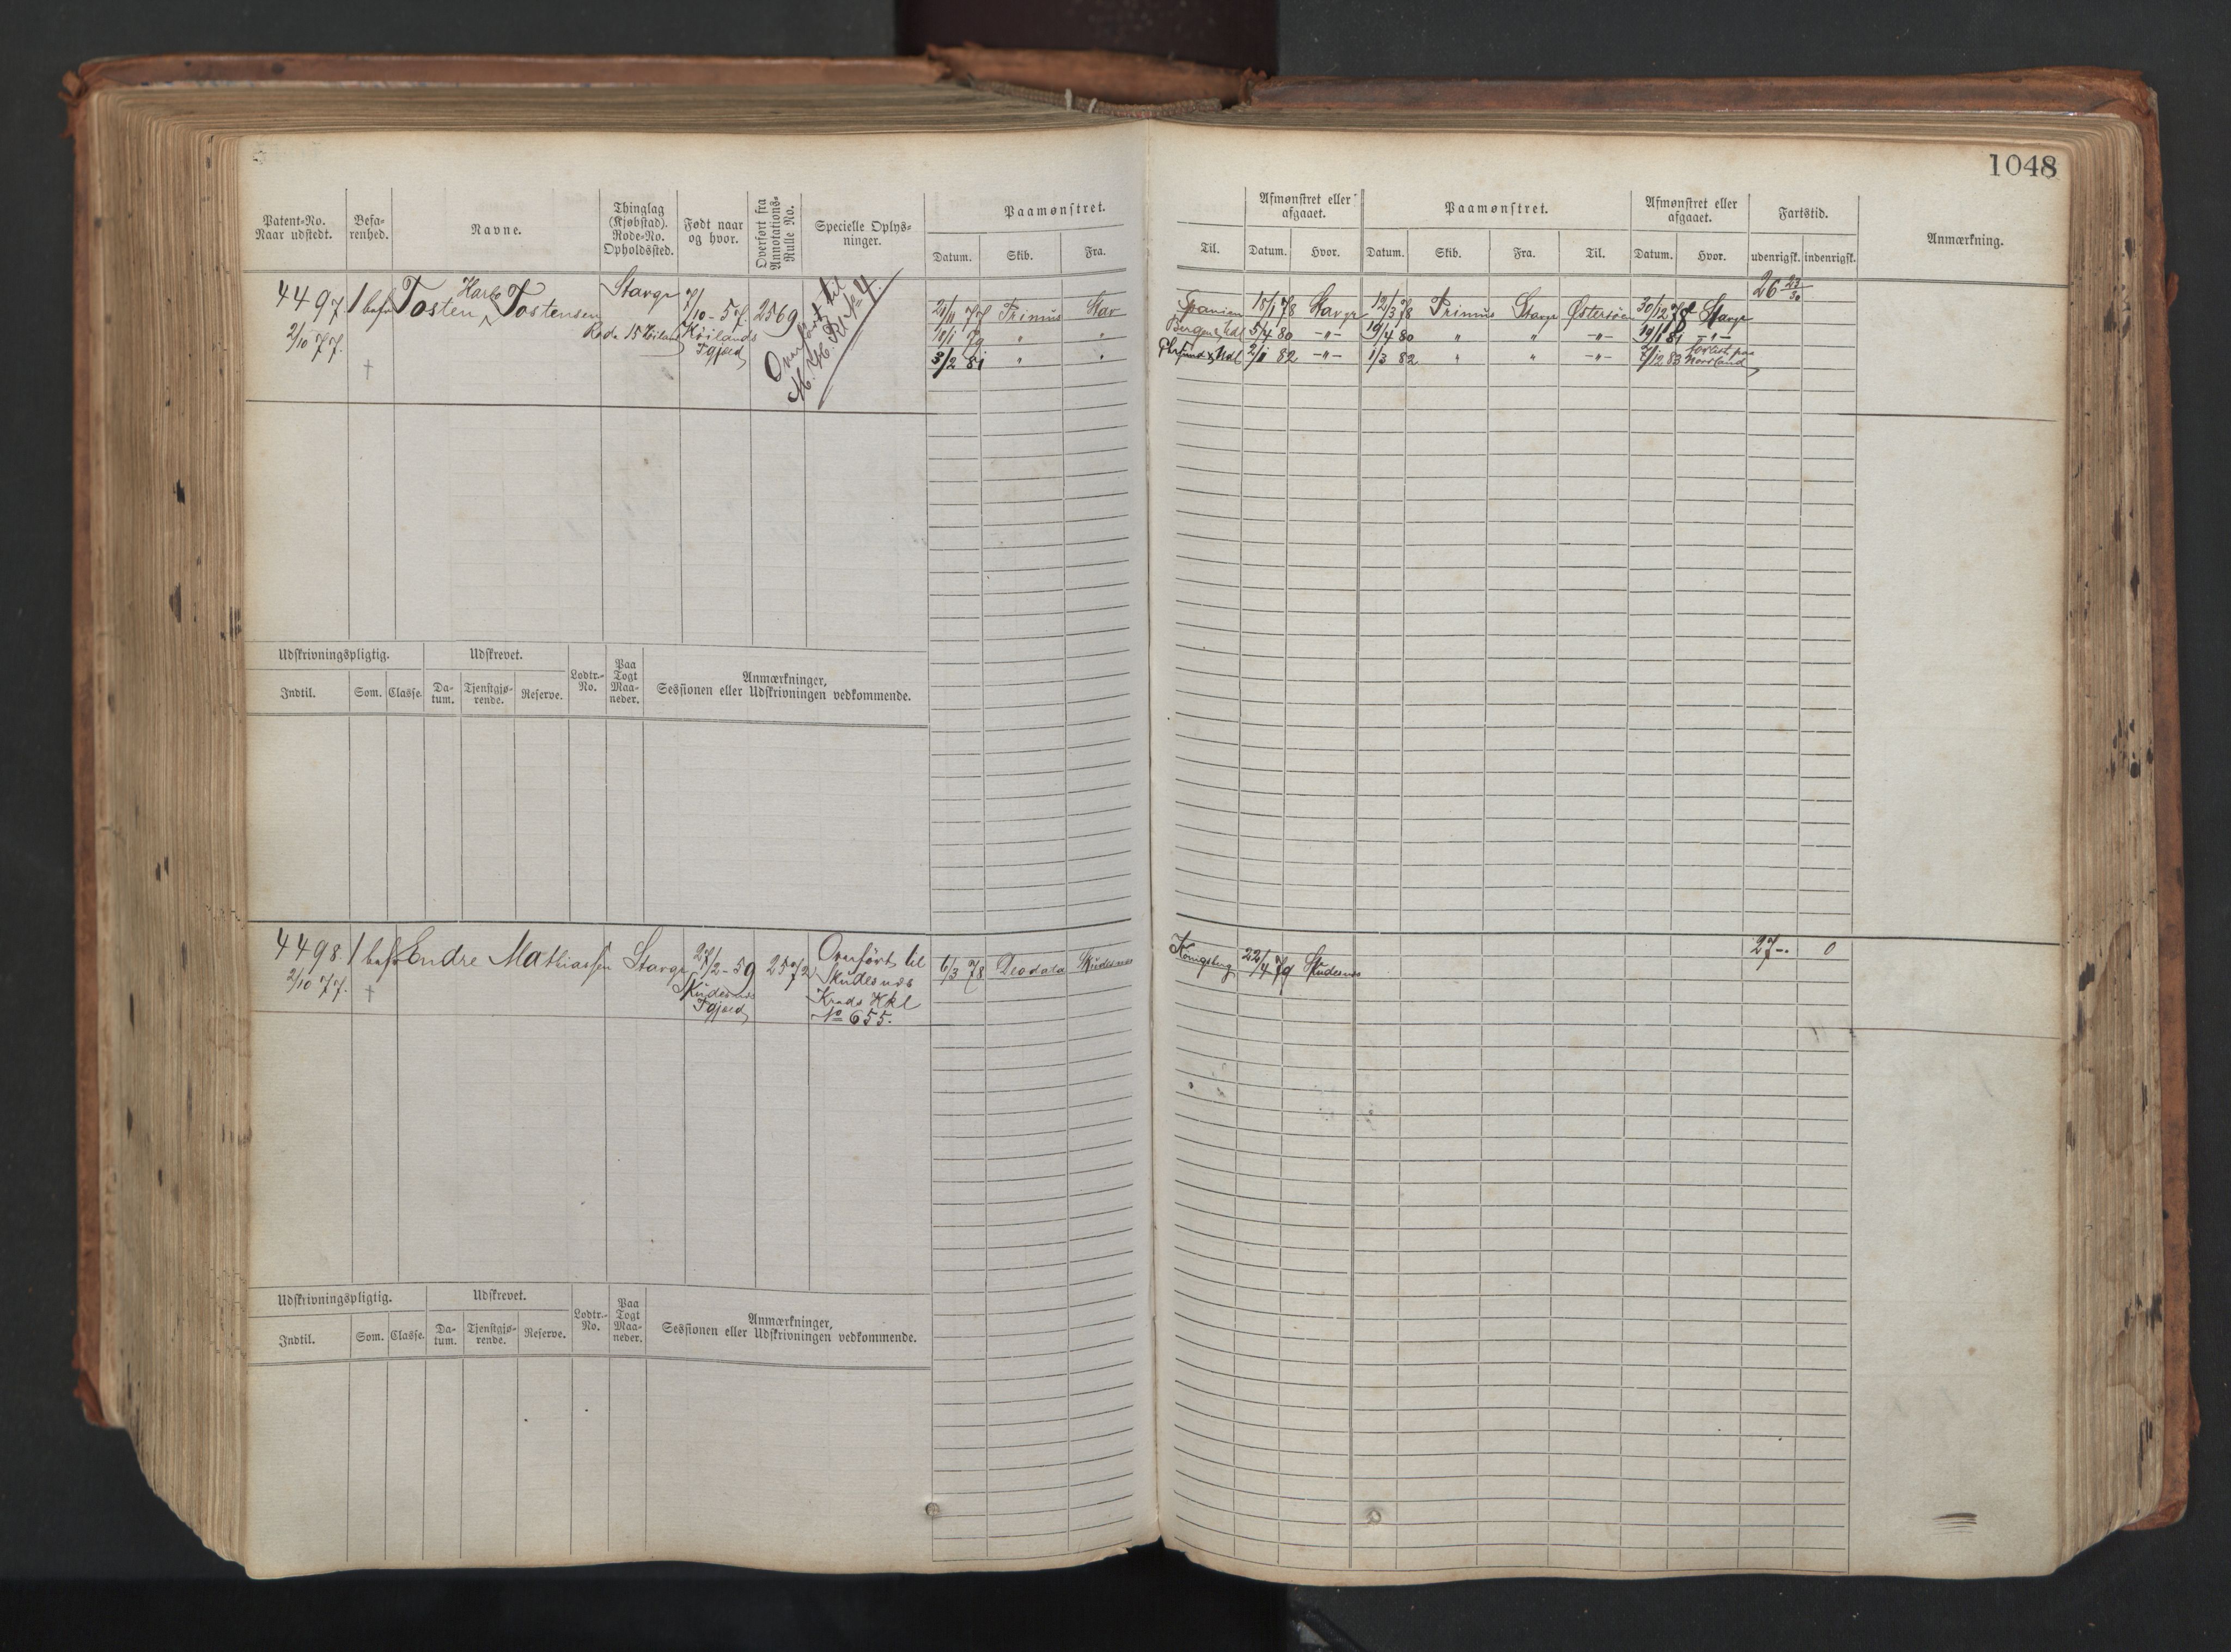 1048
Patent-No.
Naar udstedt.
Befa-
renhed.
Navne.
Thinglag
(Kjøbstad).
Rode-No.
Opholdssted.
Født naar
og hvor.
Overført fra
Annotations-
Rulle No.
Specielle Oplys-
ninger.
Paamønstret.
Datum. Skib. Fra.
Til.
Afmønstret eller
afgaaet.
Datum. Hvor.
Paamønstret.
Datum. Skib. Fra. Til.
Afmønstret eller
afgaaet.
Datum. Hvor.
Fartstid.
udenrigsk. indenrigsk.
Anmærkning.
4497. 1 bef
2/10 77.
Harbo
Tosten Tostensen
Stavgr
Rode 15
7/10-57.
Høilands
Pgjæld
2569
Overført til
21/11 77 Primus Stav
10/1 79 " "
3/2 81 " "
Spanien 18/1 78 Stavgr 12/3 78 Primus Stavgr Østersøen 30/12 78 Stavgr
5/4 80 -"- 19/4 80 " " -"- 19/1 81 -"-
2/1 82 -"- 1/3 82 " " -"- 7/12 83 forlist paa
Norrland
26 23/30
Udskrivningspligtig.
Indtil. Som. Classe.
Udskrevet.
Da-
tum.
Tjenstgjø-
rende.
Reserve.
Lodtr.-
No.
Paa
Togt
Maa-
neder.
Anmærkninger,
Sessionen eller Udskrivningen vedkommende.
4498. 1 bef Endre Mathiassen Stavgr
2/10 77.
27/2-59
Skudesnæs
Pgjæld
2572
Overført til
Skudesnæs
Kreds Hkl
No 655.
6/3 78 Skudesnæs
Königsberg 22/4 79 Skudesnæs
27-. 0
Udskrivningspligtig.
Indtil. Som. Classe.
Udskrevet.
Da-
tum.
Tjenstgjø-
rende.
Reserve.
Lodtr.-
No.
Paa
Togt
Maa-
neder.
Anmærkninger,
Sessionen eller Udskrivningen vedkommende.